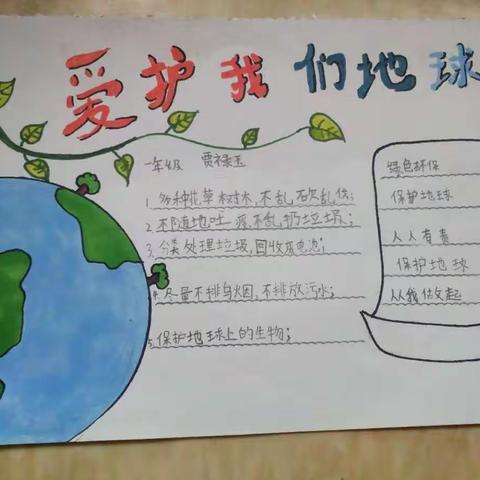 爱护我们地球
一年级 贾禄玉
1.多种花草树木,不乱砍乱伐;
2.不随地吐痰,不乱扔垃圾;
3.分类处理垃圾,回收废电池;
4.尽量不排乌烟,不排放污水;
5.保护地球上的生物;
绿色环保
保护地球
人人有责
保护地球
从我做起